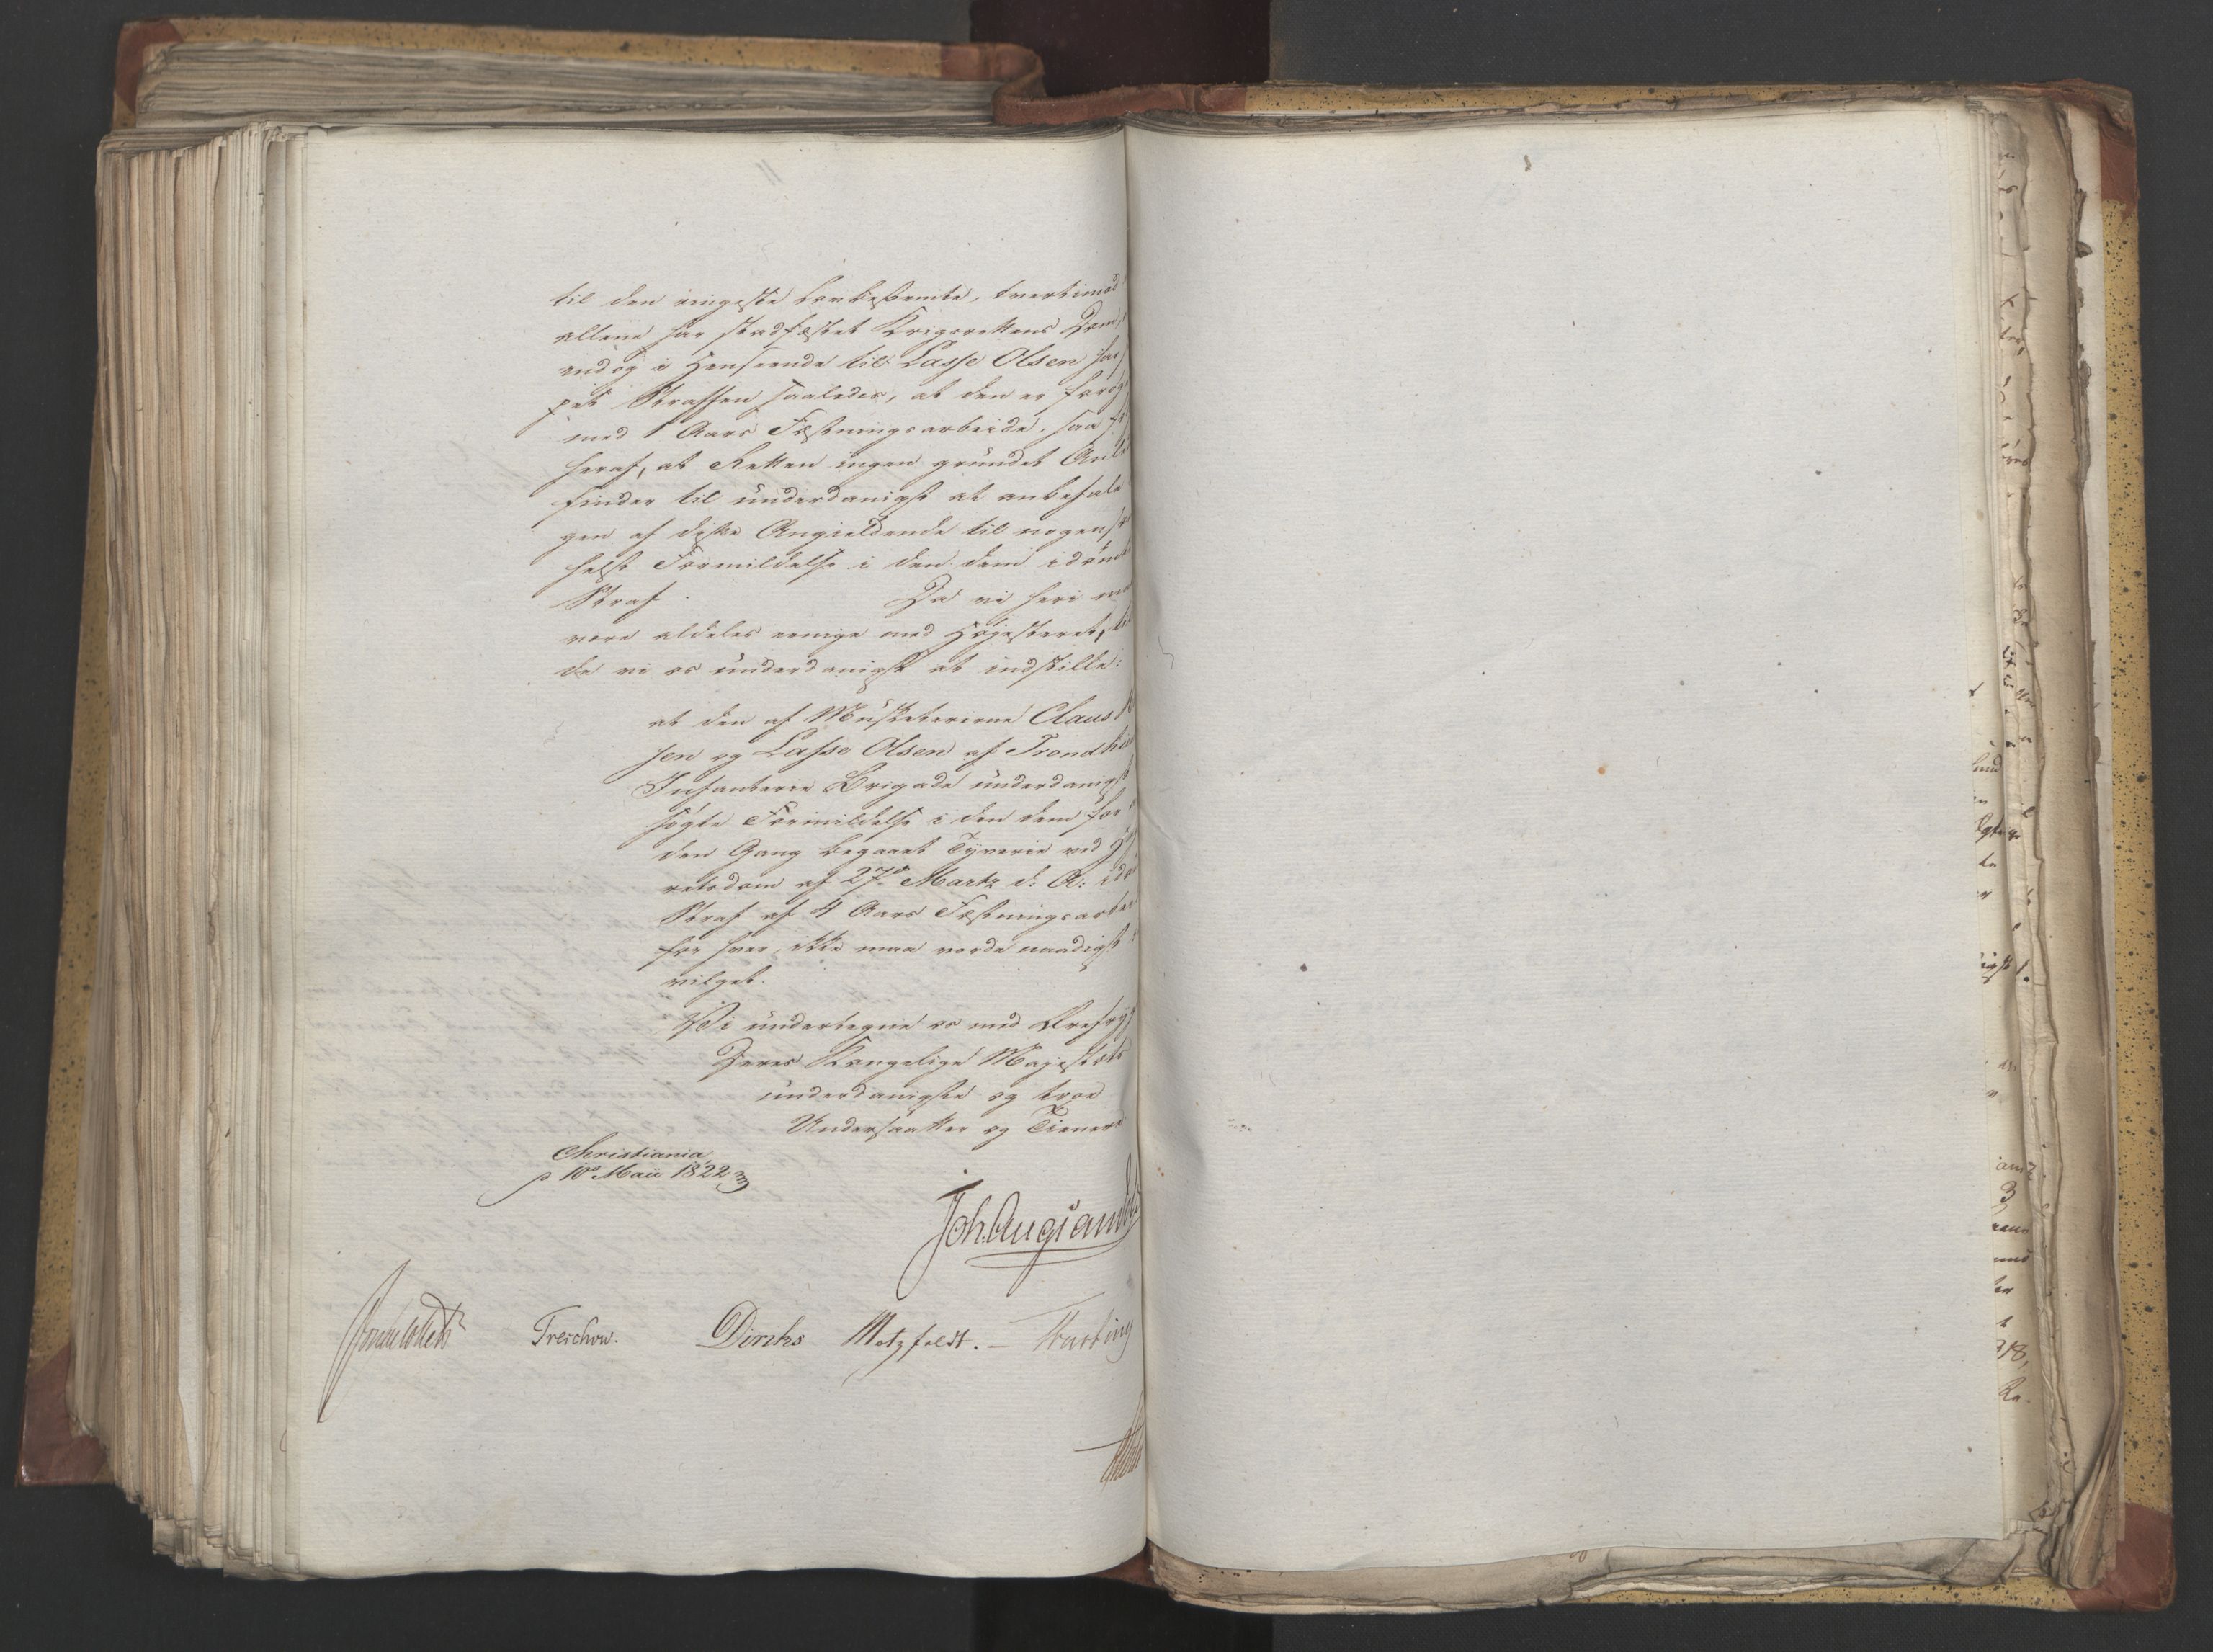 til den ringeste
allene har stadfæstet Krigsrettens Dom,
endog i Henseende til Lasse Olsen
pet Straffen saaledes, at den er
med 1 Aars Fæstningsarbeide, saa
heraf, at Retten ingen grundet
finder til underdanigst at anbefale
gen af disse Angieldende til nogen
helst Formildelse i den dem idømte
Straf. Da vi heri
være aldeles eenige med Høiesteret,
de vi os underdanigst at indstille:
at den af Musketererne Claus
sen og Lasse Olsen af Trondhiem
Infanterie Brigade underdanigst
søgte Formildelse i den dem for
den Gang begaaet Tyverie ved
retsdom af 27de Martz d: A:
Straf af 4 Aars Fæstningsarbei
for hver, ikke maa vorde naadigst
vilget.
Vi undertegne os med
Deres Kongelige Majestæts
underdanigste og troe
Undersaatter og Tienere
Christiania,
d 10de Maii 1822
Treschow. Diriks Motzfeldt.